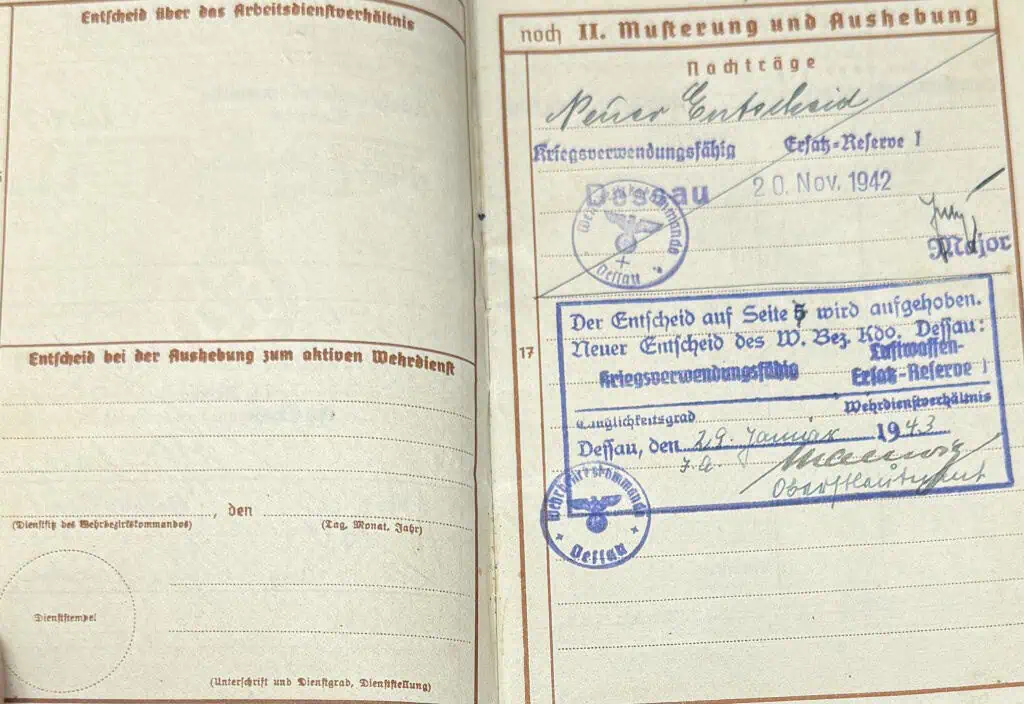 Entscheid über das Arbeitsdienstverhältnis
Entscheid bei der Aushebung zum aktiven Wehrdienst
, den
(Dienstsitz des Wehrbezirkskommandos)
(Tag, Monat, Jahr)
Dienststempel
(Unterschrift und Dienstgrad, Dienststellung)
noch II. Musterung und Aushebung
17
Nachträge
Neuer Entscheid
Kriegsverwendungsfähig Ersatz-Reserve I
Dessau 20. Nov. 1942
Dessau
Major
Der Entscheid auf Seite 5 wird aufgehoben.
Neuer Entscheid des W. Bez. Kdo. Dessau:
Luftwaffen-
Kriegsverwendungsfähig Ersatz-Reserve I
Tauglichkeitsgrad Wehrdienstverhältnis
Dessau, den 29. Januar 1943
Oberstleutnant
Wehrbezirkskommando
Dessau